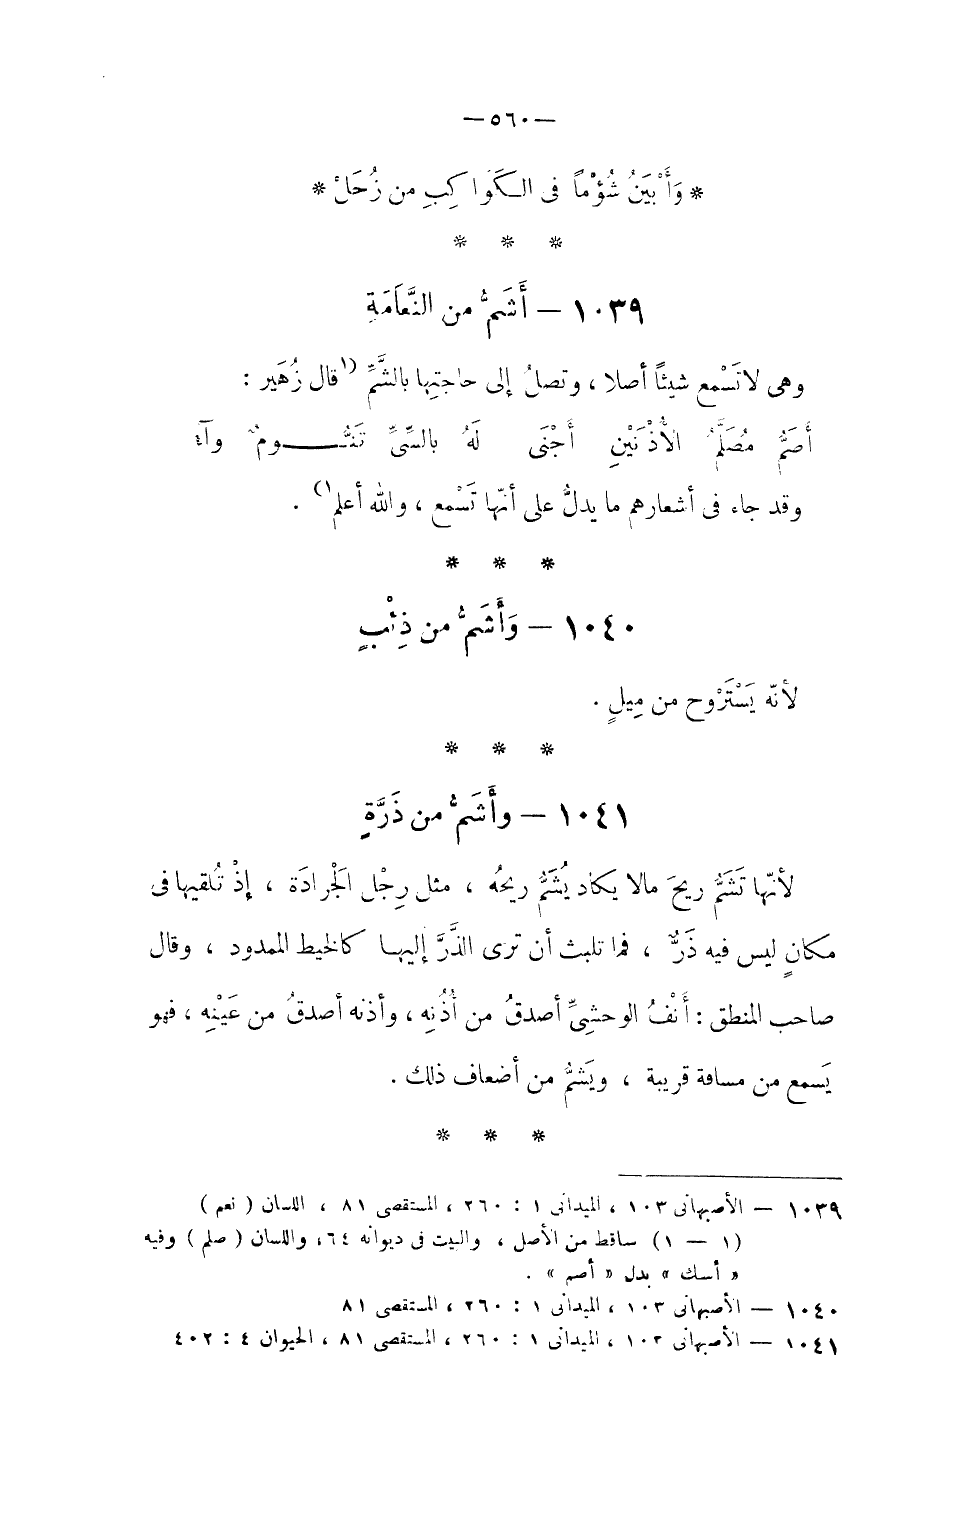 — ٥٦٠ —
* وَأَبْيَنُ شُؤْماً فى الكَوَاكِبِ من زُحَلْ *
* * *
١٠٣٩ — أَشَمُّ من النَّعَامَةِ
وهى لا تَسْمع شيئاً أصلا ، وتصلُ إلى حاجتِها بالشَّمِّ (١ قال زُهَير :
أَصَمُّ مُصَلَّمُ الأُذْنَيْنِ أَجْنَى لَهُ بالسِّىِّ تَنُّــومٌ وآءُ
وقد جاء فى أشعارهم ما يدلُّ على أنّها تَسْمع ، والله أعلم ١) .
* * *
١٠٤٠ — وَأَشَمُّ من ذِئْبٍ
لأنّه يَسْتَرْوِح من مِيلٍ .
* * *
١٠٤١ — وأَشَمُّ من ذَرَّةٍ
لأنّها تَشَمُّ ريحَ مالا يكاد يُشَمُّ ريحُه ، مثل رِجْل الجْرادَة ، إذْ تُلقيها فى
مكانٍ ليس فيه ذَرٌّ ، فما تلبث أن ترى الذَّرَّ إليها كالخيط الممدود ، وقال
صاحب المنطق : أَنْفُ الوحشىِّ أصدقُ من أُذُنِه ، وأذنه أصدقُ من عَيْنِه ، فهو
يَسمع من مسافة قريبة ، ويَشمُّ من أضعاف ذلك .
* * *
١٠٣٩ — الأصبهانى ١٠٣ ، الميدانى ١ : ٢٦٠ ، المستقصى ٨١ ، اللسان ( نعم )
(١ — ١) ساقط من الأصل ، والبيت فى ديوانه ٦٤، واللسان ( صلم ) وفيه
« أسك » بدل « أصم » .
١٠٤٠ — الأصبهانى ١٠٣ ، الميدانى ١ : ٢٦٠ ، المستقصى ٨١
١٠٤١ — الأصبهانى ١٠٣ ، الميدانى ١ : ٢٦٠ ، المستقصى ٨١ ، الحيوان ٤ : ٤٠٢